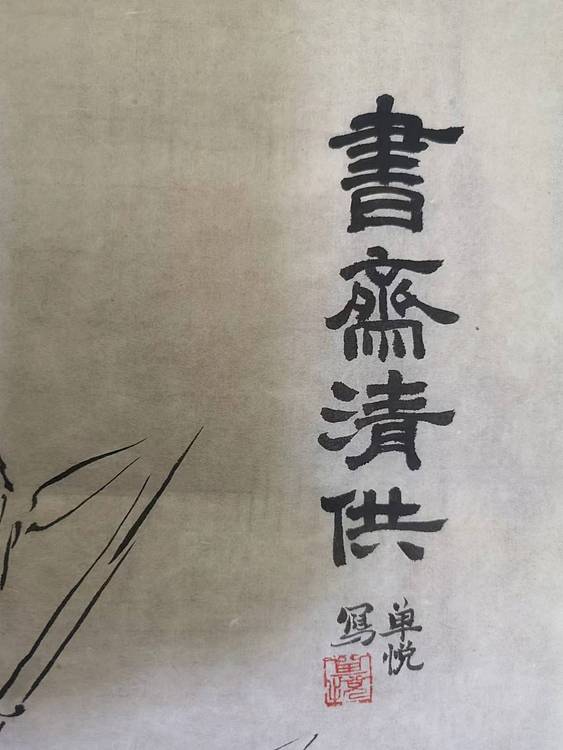 書齋清供
单悦
寫